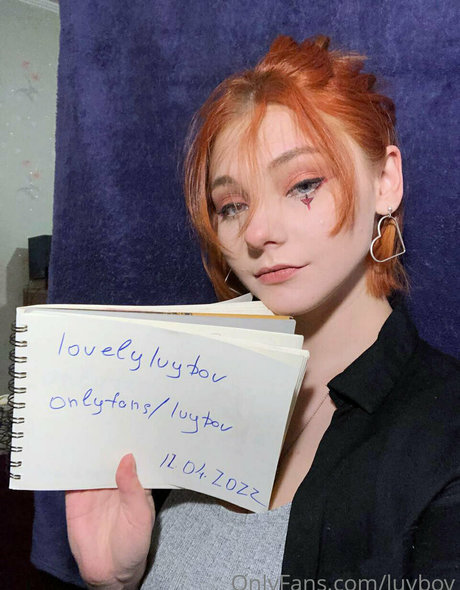 lovelyluvbov
onlyfans/luvbov
12.04.2022
OnlyFans.com/luvbov